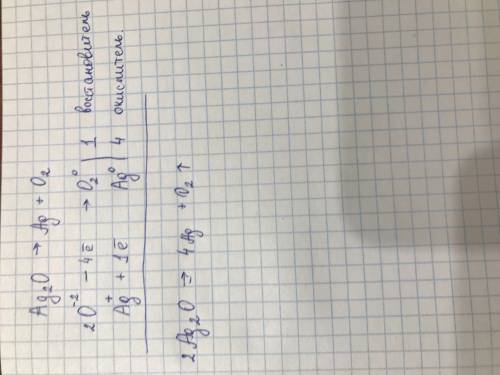 Ag₂O → Ag + O₂
2O⁻² − 4ē → O₂⁰ | 1 восстановитель
Ag⁺ + 1ē Ag⁰ | 4 окислитель
2Ag₂O → 4Ag + O₂ ↑